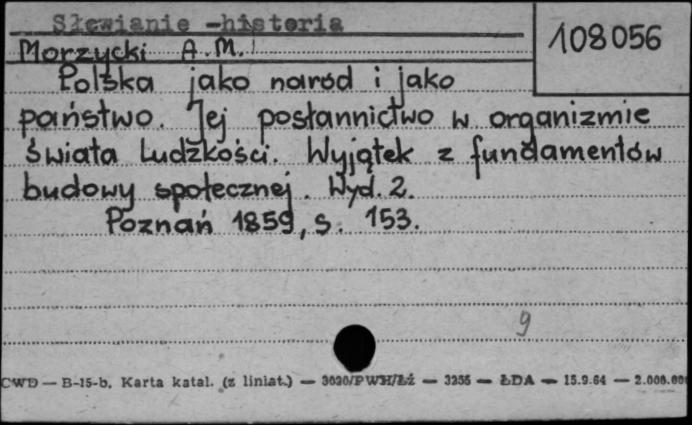 Słowianie - historia
108056
Morzycki A.M.
Polska jako naród i jako
państwo. Jej posłannictwo w organizmie
świata Ludzkości. Wyjątek z fundamentów
budowy społecznej. Wyd. 2.
Poznań 1859, s. 153.
9
CWD — B-15-b. Karta katal. (z liniat.) — 3020/PWH/Łź — 3255 — ŁDA — 15.9.64 — 2.000.000